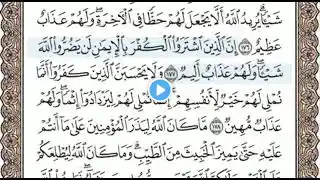 شَيْـًٔا يُرِيدُ ٱللَّهُ أَلَّا يَجْعَلَ لَهُمْ حَظًّا فِى ٱلْـَٔاخِرَةِ وَلَهُمْ عَذَابٌ
عَظِيمٌ ١٧٦ إِنَّ ٱلَّذِينَ ٱشْتَرَوُا۟ ٱلْكُفْرَ بِٱلْإِيمَٰنِ لَن يَضُرُّوا۟ ٱللَّهَ
شَيْـًٔا وَلَهُمْ عَذَابٌ أَلِيمٌ ١٧٧ وَلَا يَحْسَبَنَّ ٱلَّذِينَ كَفَرُوٓا۟ أَنَّمَا
نُمْلِى لَهُمْ خَيْرٌ لِّأَنفُسِهِمْ إِنَّمَا نُمْلِى لَهُمْ لِيَزْدَادُوٓا۟ إِثْمًا وَلَهُمْ
عَذَابٌ مُّهِينٌ ١٧٨ مَّا كَانَ ٱللَّهُ لِيَذَرَ ٱلْمُؤْمِنِينَ عَلَىٰ مَآ أَنتُمْ
عَلَيْهِ حَتَّىٰ يَمِيزَ ٱلْخَبِيثَ مِنَ ٱلطَّيِّبِ وَمَا كَانَ ٱللَّهُ لِيُطْلِعَكُمْ